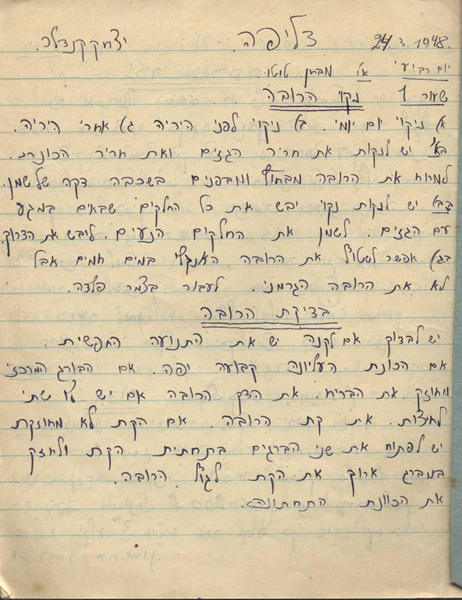 24.3.1948. צליפה. יצחק קנדלר.
יום רביעי א) מבחן
שעור 1 נקוי הרובה
א) ניקוי יום יומי. ב) ניקוי לפני היריה ג) אחרי היריה.
בא) יש לנקות את חריר הגזים ואת חריר הכונת.
למרוח את הרובה מבחוץ ומבפנים בשכבה דקה של שמן.
בב) יש לנקות נקוי יבש את כל החלקים שבאים במגע
עם הגזים. לשמן את החלקים הנעים. ליבש את הדרוך.
בג) אפשר לשטוף את הרובה האנגלי במים חמים אבל
לא את הרובה הגרמני. לעבור בצמר פלדה.
בדיקת הרובה
יש לבדוק אם לקנה יש את התנועה החפשית.
אם הכונת העליונה קבועה יפה. אם הבורג המרכזי
מחוזק. את הבריח. את הדק הרובה אם יש לו שתי
לחיצות. את קת הרובה. אם הקת לא מחוזקת
יש לפתוח את שני הברגים בתחתית הקת ולחזק
במברג ארוך את הקת לגוף הרובה.
את הכוונת התחתונה.